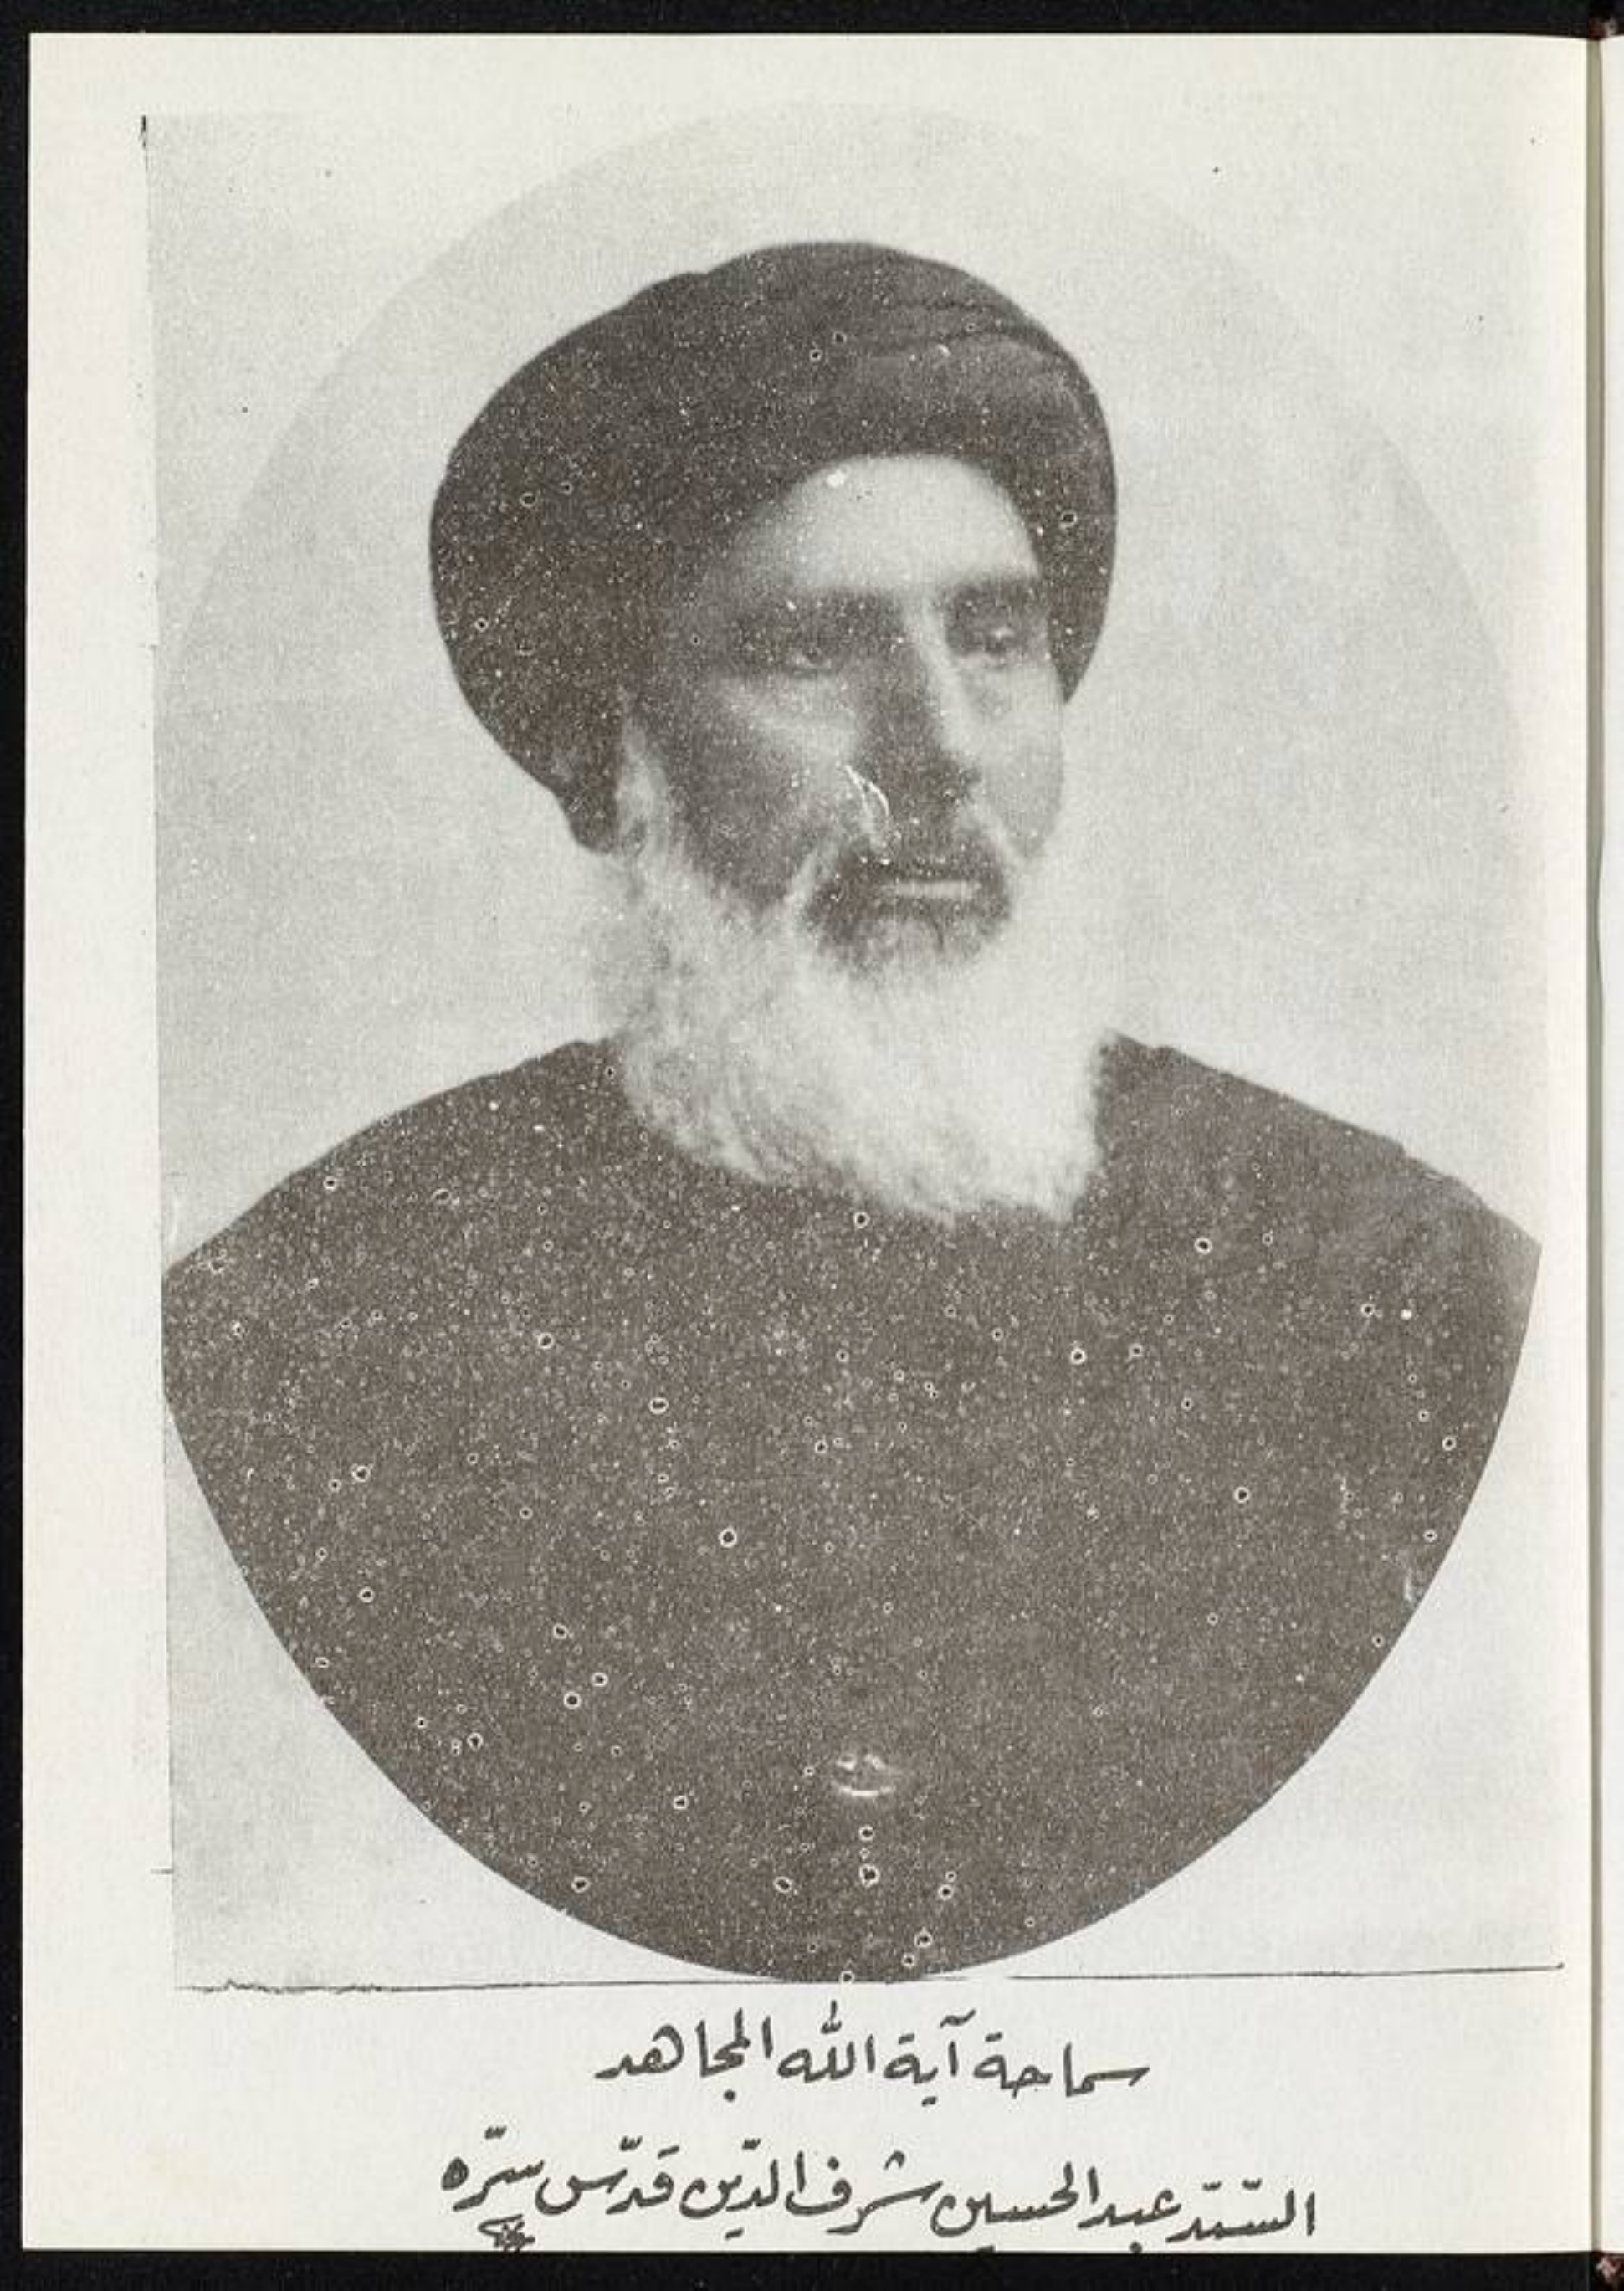 سماحة آية الله المجاهد
السّيّد عبد الحسين شرف الدّين قدّس سرّه